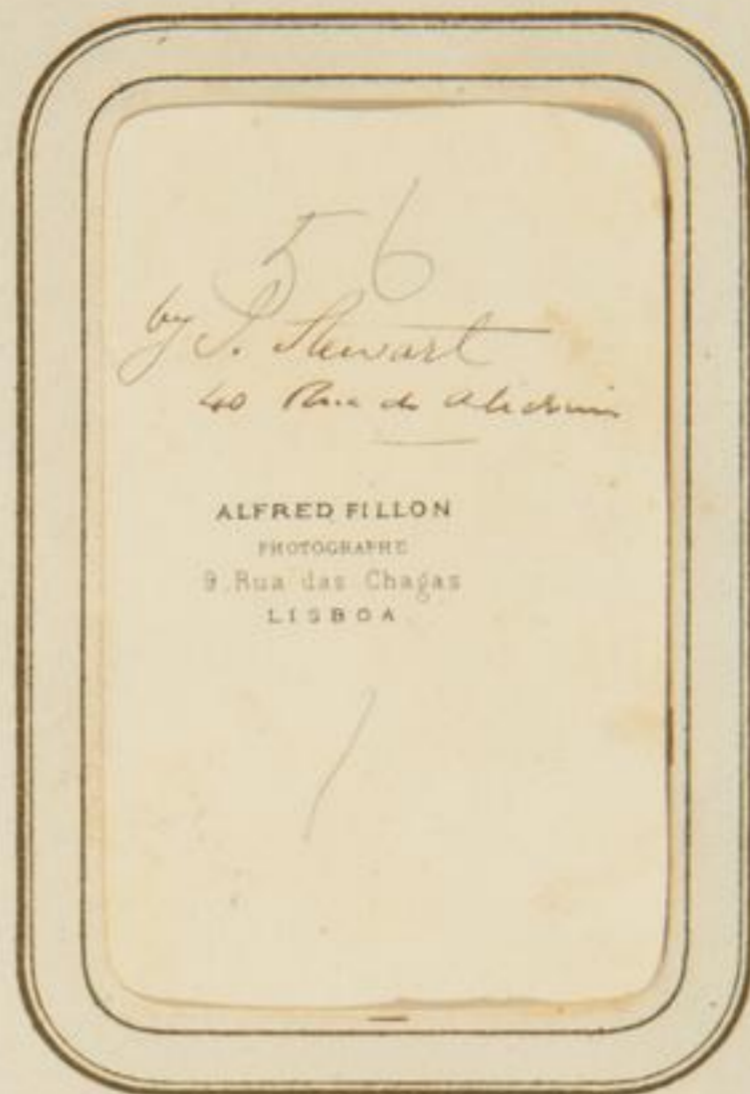 56
by J. Stewart
40 Rua do
ALFRED FILLON
PHOTOGRAPHE
9, Rua das Chagas
LISBOA